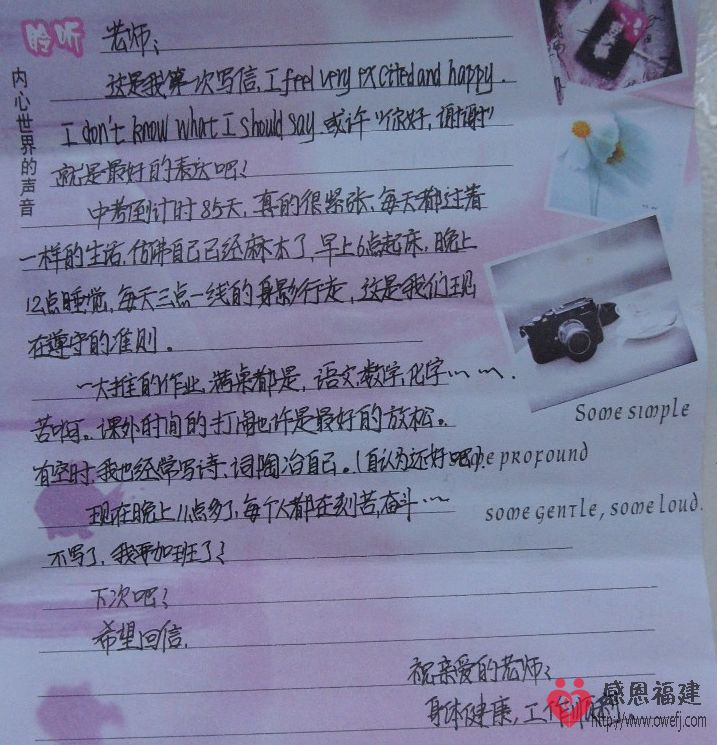 聆听
内心世界的声音
老师:
这是我第一次写信, I feel very excited and happy.
I don't know what I should say 或许"你好,谢谢"
就是最好的表达吧!
中考倒计时85天,真的很紧张,每天都过着
一样的生活,仿佛自己已经麻木了,早上6点起床,晚上
12点睡觉,每天三点一线的身影行走,这是我们现
在遵守的准则。
一大堆的作业,满桌都是,语文,数学,化学……
苦啊。课外时间的打闹也许是最好的放松。
有空时,我也经常写诗、词陶冶自己。(自认为还好吧!).
现在晚上11点多了,每个人都在刻苦,奋斗…
不写了,我要加班了!
下次吧!
希望回信.
祝亲爱的老师:
身体健康,工作顺利!
Some simple
some profound
some gentle, some loud.
感恩福建
http://www.owefj.com